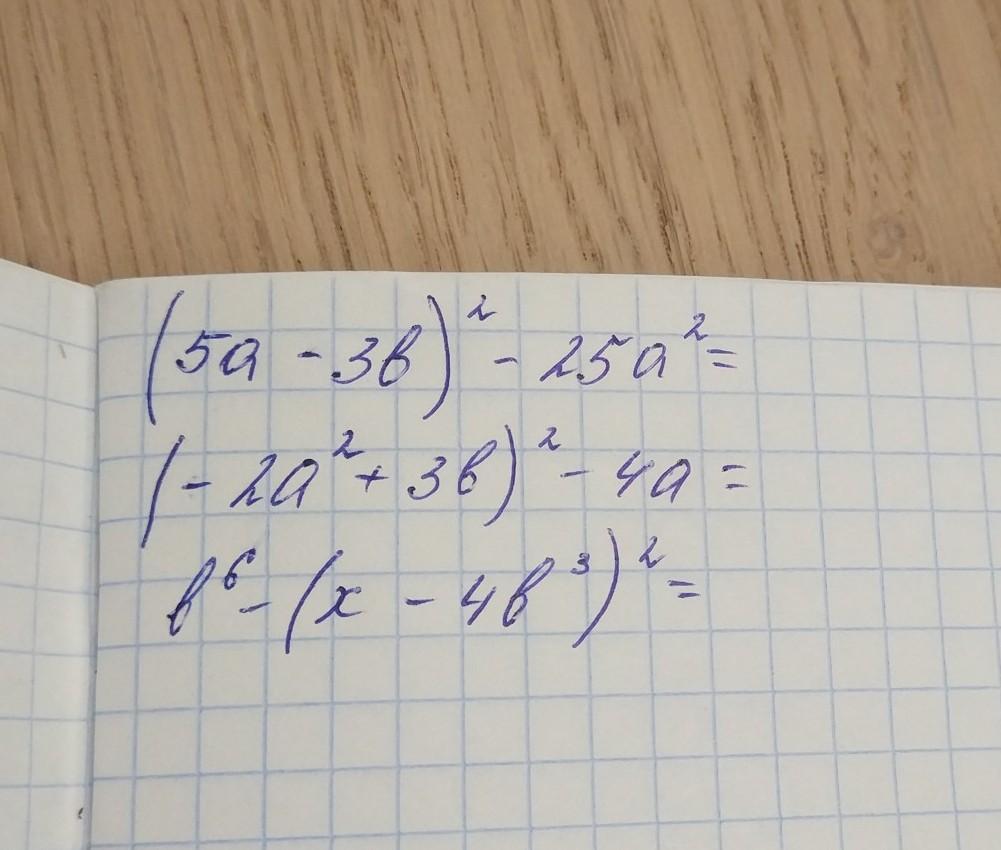 (5a - 3b)² - 25a² =
(- 2a² + 3b)² - 4a =
b⁶ - (x - 4b³)² =